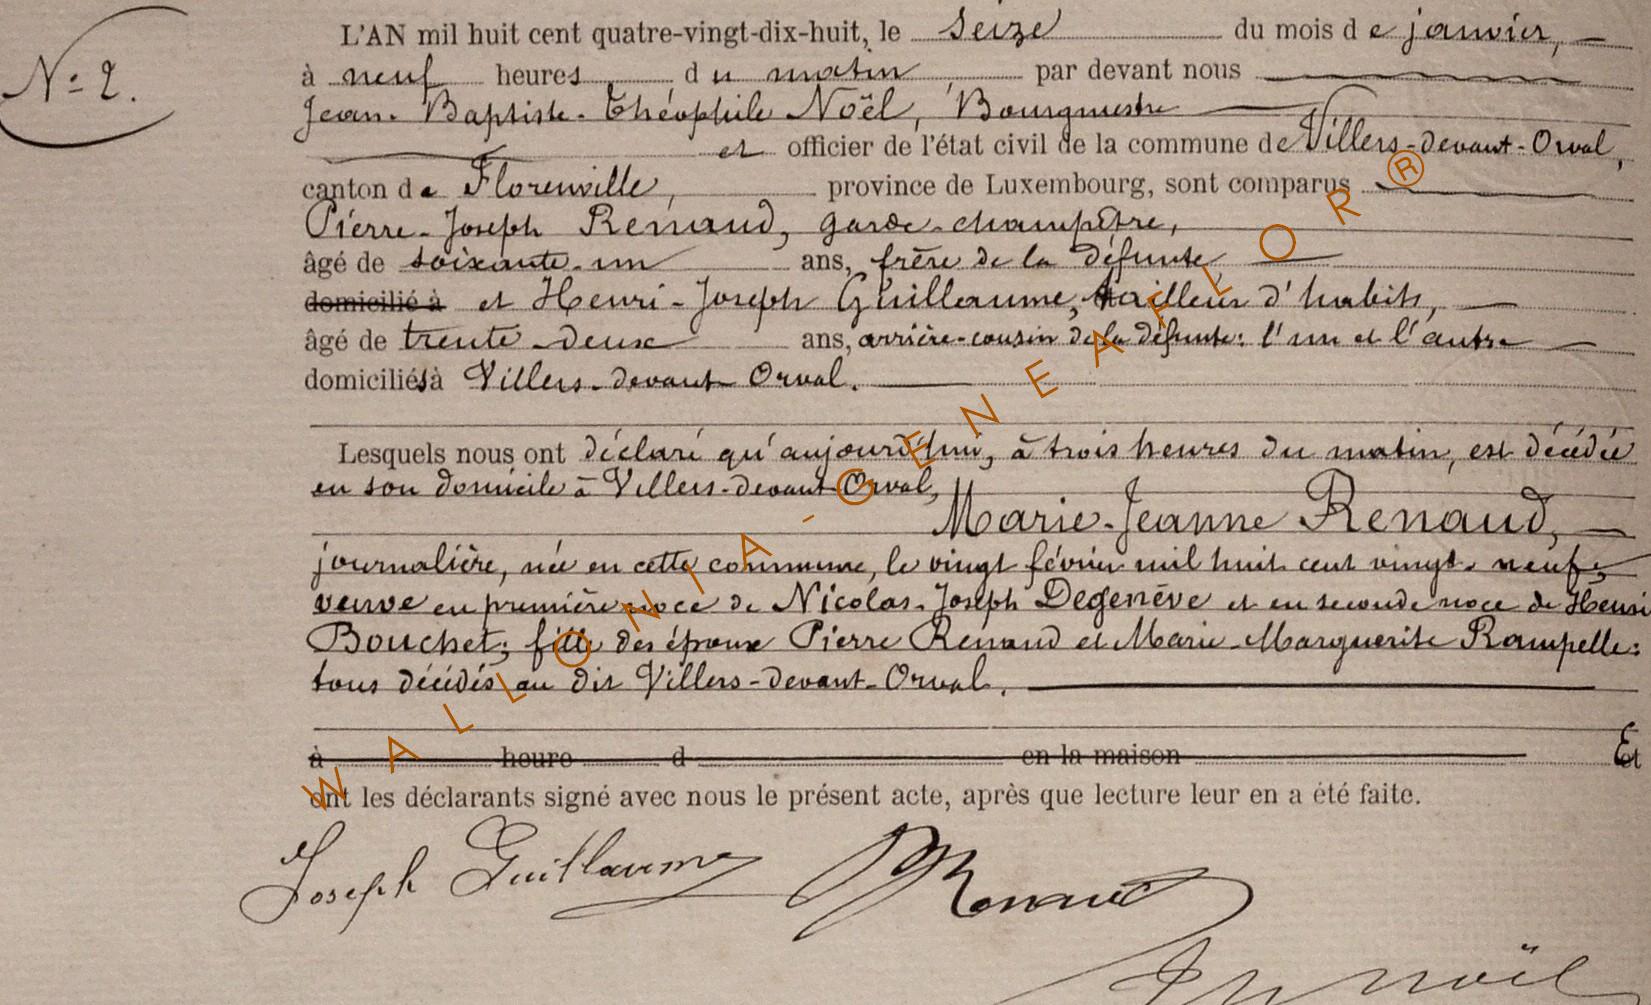 L'AN mil huit cent quatre-vingt-dix-huit, le seize du mois de janvier,
N° 2.
à neuf heures du matin, par devant nous
Jean-Baptiste-Théophile Noël, Bourgmestre
et officier de l'état civil de la commune de Villers-devant-Orval,
canton de Florenville, province de Luxembourg, sont comparus
Pierre-Joseph Renaud, garde-champêtre,
âgé de soixante-un ans, frère de la défunte
domicilié à et Henri-Joseph Guillaume, tailleur d'habits,
âgé de trente-deux ans, arrière-cousin de la défunte: l'un et l'autre
domiciliés à Villers-devant-Orval.
Lesquels nous ont déclaré qu'aujourd'hui, à trois heures du matin, est décédée
en son domicile à Villers-devant-Orval,
Marie-Jeanne Renaud,
journalière, née en cette commune, le vingt février mil huit cent vingt-neuf,
veuve en première noce de Nicolas-Joseph Degenève et en seconde noce de Henri
Bouchet; fille des époux Pierre Renaud et Marie-Marguerite Rampelle:
tous décédés au dit Villers-devant-Orval.
à heure d en la maison Et
ont les déclarants signé avec nous le présent acte, après que lecture leur en a été faite.
Joseph Guillaume Renaud
Noël
WALLONIA-GENEAFLOR®